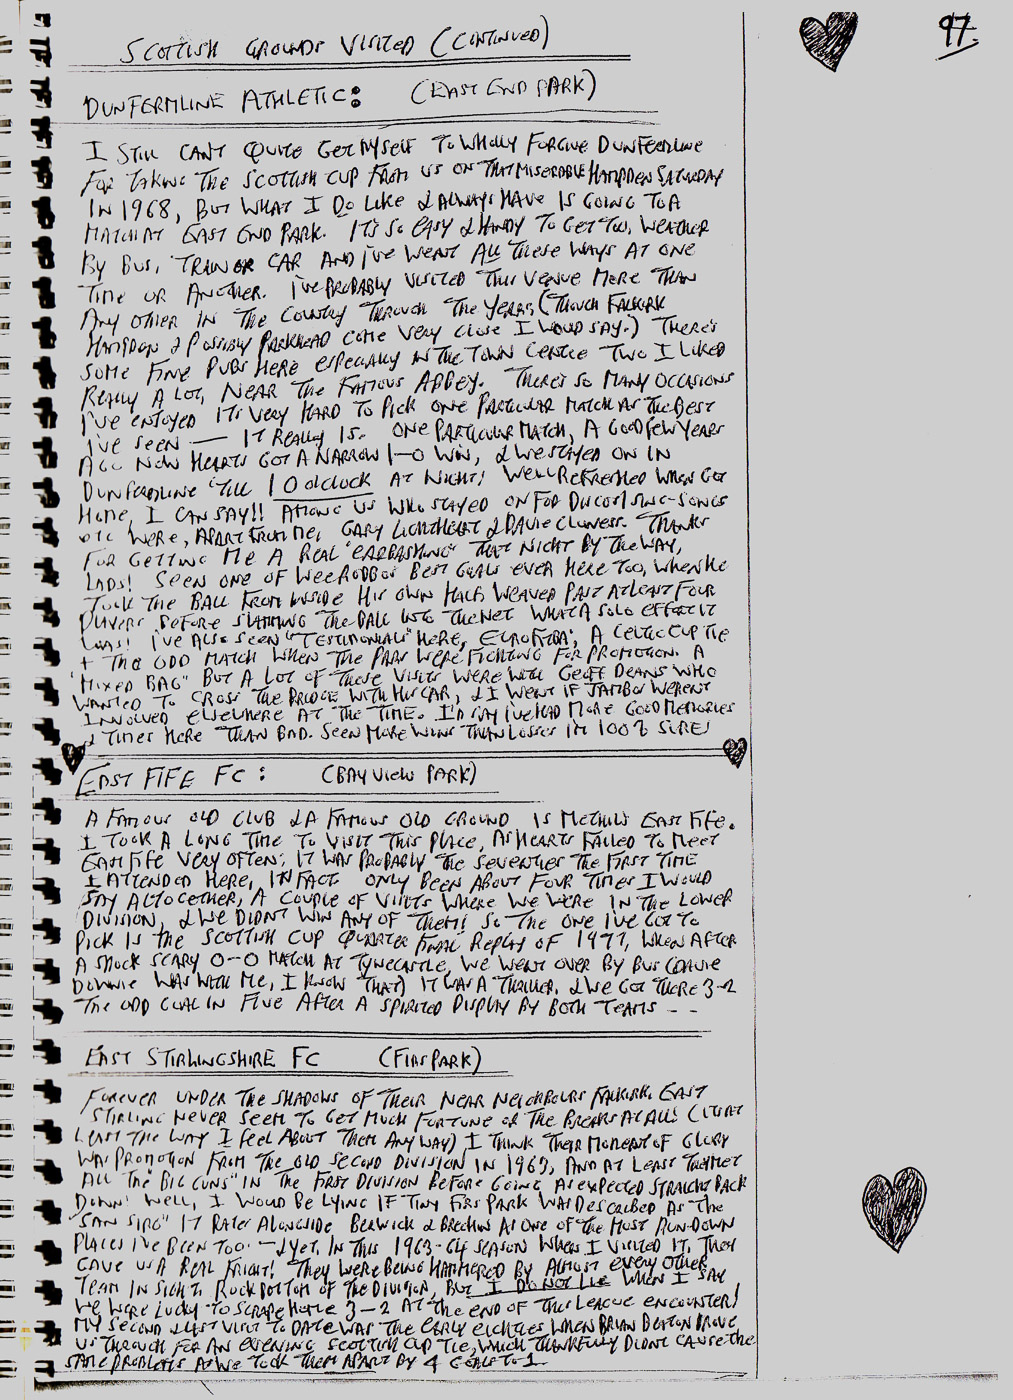 SCOTTISH GROUNDS VISITED (CONTINUED)
97.
DUNFERMLINE ATHLETIC: (EAST END PARK)
I STILL CAN'T QUITE GET MYSELF TO WHOLLY FORGIVE DUNFERMLINE
FOR TAKING THE SCOTTISH CUP FROM US ON THAT MISERABLE HAMPDEN SATURDAY
IN 1968, BUT WHAT I DO LIKE & ALWAYS HAVE IS GOING TO A
MATCH AT EAST END PARK. IT'S SO EASY & HANDY TO GET TOO, WEATHER
BY BUS, TRAIN OR CAR AND I'VE WENT ALL THESE WAYS AT ONE
TIME OR ANOTHER. I'VE PROBABLY VISITED THIS VENUE MORE THAN
ANY OTHER IN THE COUNTRY THROUGH THE YEARS, (THOUGH FALKIRK
HAMPDEN & POSSIBLY PARKHEAD COME VERY CLOSE I WOULD SAY.) THERE'S
SOME FINE PUBS HERE ESPECIALLY IN THE TOWN CENTRE TWO I LIKED
REALLY A LOT, NEAR THE FAMOUS ABBEY. THERE'S SO MANY OCCASIONS
I'VE ENJOYED IT'S VERY HARD TO PICK ONE PARTICULAR MATCH AS THE BEST
I'VE SEEN — IT REALLY IS. ONE PARTICULAR MATCH, A GOOD FEW YEARS
AGO NOW HEARTS GOT A NARROW 1-0 WIN, & WE STAYED ON IN
DUNFERMLINE 'TILL 10 O'CLOCK AT NIGHT! WELL REFRESHED WHEN GOT
HOME, I CAN SAY!! AMONG US WHO STAYED ON FOR DISCO/SING-SONGS
ETC WERE, APART FROM ME, GARY LIGHTHEART & DAVIE CLUNESS. THANKS
FOR GETTING ME A REAL "EARBASHING" THAT NIGHT BY THE WAY,
LADS! SEEN ONE OF WEE ROBBO'S BEST GOALS EVER HERE TOO, WHEN HE
TOOK THE BALL FROM INSIDE HIS OWN HALF, WEAVED PAST AT LEAST FOUR
PLAYERS BEFORE SLAMMING THE BALL INTO THE NET WHAT A SOLO EFFORT IT
WAS! I'VE ALSO SEEN "TESTIMONIALS" HERE, A CELTIC CUP TIE
+ THE ODD MATCH WHEN THE PARS WERE FIGHTING FOR PROMOTION. A
"MIXED BAG" BUT A LOT OF THOSE VISITS WERE WITH GEOFF DEANS WHO
WANTED TO CROSS THE BRIDGE WITH HIS CAR, & I WENT IF JAMBOS WEREN'T
INVOLVED ELSEWHERE AT THE TIME. I'D SAY I'VE HAD MORE GOOD MEMORIES
& TIMES HERE THAN BAD. SEEN MORE WINS THAN LOSSES I'M 100% SURE!
EAST FIFE FC: (BAYVIEW PARK)
A FAMOUS OLD CLUB & A FAMOUS OLD GROUND IS METHIL'S EAST FIFE.
I TOOK A LONG TIME TO VISIT THIS PLACE, AS HEARTS FAILED TO MEET
EAST FIFE VERY OFTEN, IT WAS PROBABLY THE SEVENTIES THE FIRST TIME
I ATTENDED HERE, IN FACT ONLY BEEN ABOUT FOUR TIMES I WOULD
SAY ALTOGETHER, A COUPLE OF VISITS WHERE WE WERE IN THE LOWER
DIVISION, & WE DIDN'T WIN ANY OF THEM! SO THE ONE I'VE GOT TO
PICK IS THE SCOTTISH CUP QUARTER FINAL REPLAY OF 1977, WHEN AFTER
A SHOCK SCARY 0-0 MATCH AT TYNECASTLE, WE WENT OVER BY BUS (DAVIE
DOWNIE WAS WITH ME, I KNOW THAT) IT WAS A THRILLER, & WE GOT THERE 3-2
THE ODD GOAL IN FIVE AFTER A SPIRITED DISPLAY BY BOTH TEAMS - -
EAST STIRLINGSHIRE FC (FIRS PARK)
FOREVER UNDER THE SHADOWS OF THEIR NEAR NEIGHBOURS FALKIRK. EAST
STIRLING NEVER SEEM TO GET MUCH FORTUNE OR THE BREAKS AT ALL! (
LEAST THE WAY I FEEL ABOUT THEM ANYWAY) I THINK THEIR MOMENT OF GLORY
WAS PROMOTION FROM THE OLD SECOND DIVISION IN 1963, AND AT LEAST THEY MET
ALL THE "BIG GUNS" IN THE FIRST DIVISION BEFORE GOING AS EXPECTED STRAIGHT BACK
DOWN! WELL, I WOULD BE LYING IF TINY FIRS PARK WAS DESCRIBED AS THE
"SAN SIRO" IT RATES ALONGSIDE BERWICK & BRECHIN AS ONE OF THE MOST RUN-DOWN
PLACES I'VE BEEN TOO. — & YET, IN THIS 1963-64 SEASON WHEN I VISITED IT, THEY
GAVE US A REAL FRIGHT! THEY WERE BEING HAMMERED BY ALMOST EVERY OTHER
TEAM IN SIGHT, ROCK BOTTOM OF THE DIVISION, BUT I DO NOT LIE WHEN I SAY
WE WERE LUCKY TO SCRAPE HOME 3-2 AT THE END OF THIS LEAGUE ENCOUNTER!
MY SECOND & LAST VISIT TO DATE WAS THE EARLY EIGHTIES WHEN BRIAN DROVE
US THROUGH FOR AN EVENING SCOTTISH CUP TIE, WHICH THANKFULLY DIDN'T CAUSE THE
SAME PROBLEMS AS WE TOOK THEM APART BY 4 GOALS TO 1.